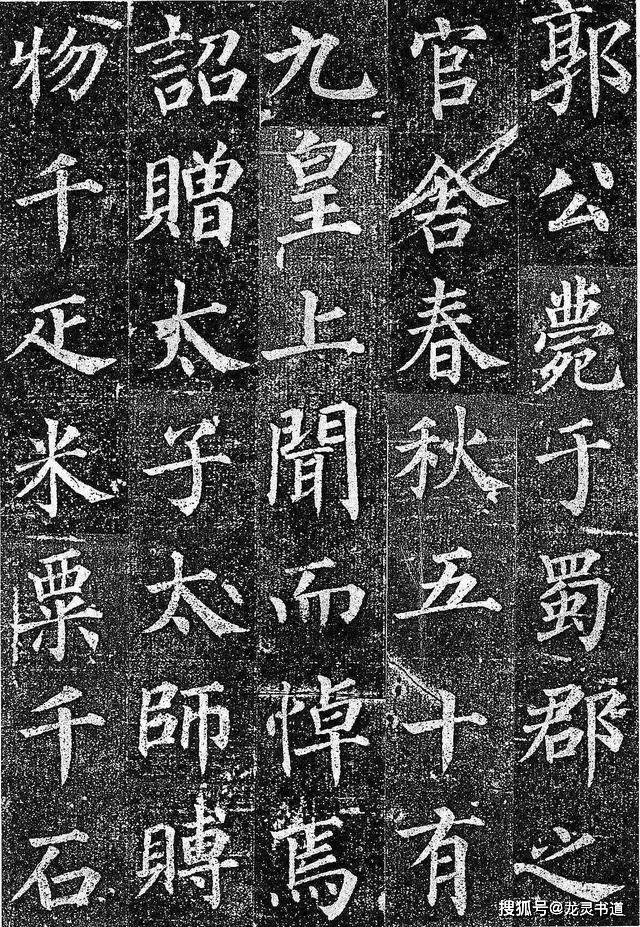 郭公薨于蜀郡之
官舍春秋五十有
九皇上聞而悼焉
詔贈太子太師賻
物千疋米粟千石
搜狐号@龙灵书道